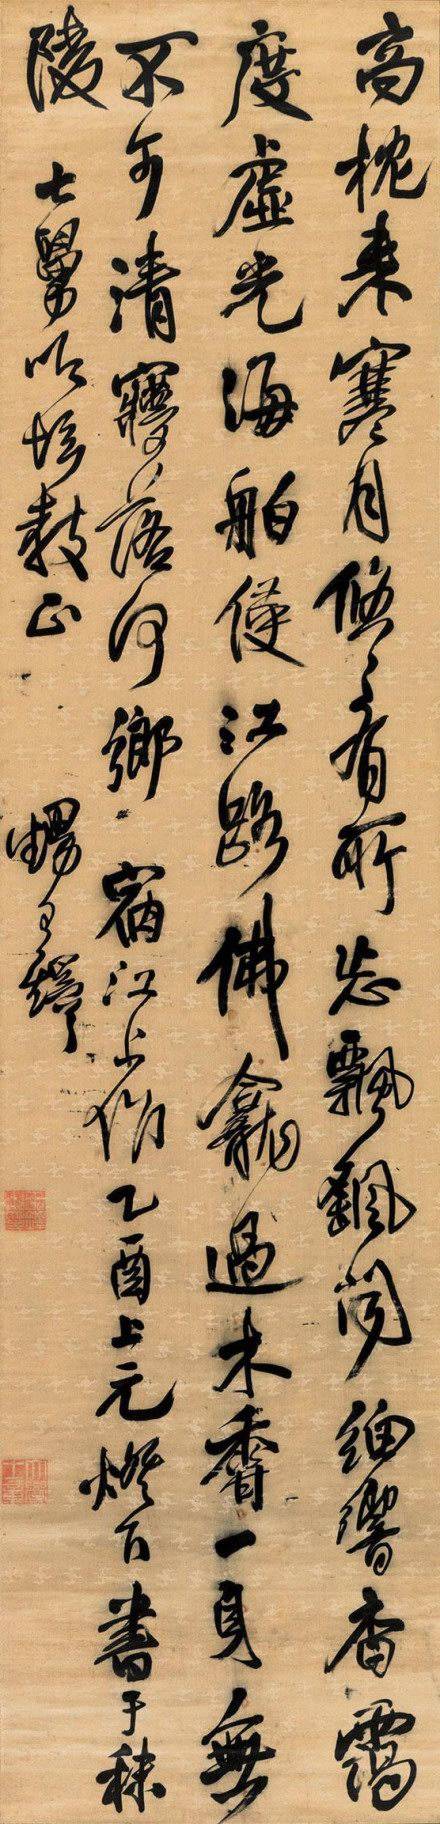 高枕來寒月悠悠有所忘飄颻聞細響杳靄
度虛光海舶侵江路佛龕過木香一身無
不可清夢落何鄉 宿江上作 乙酉上元燈下書于秣
陵 七舅教正 甥王鐸